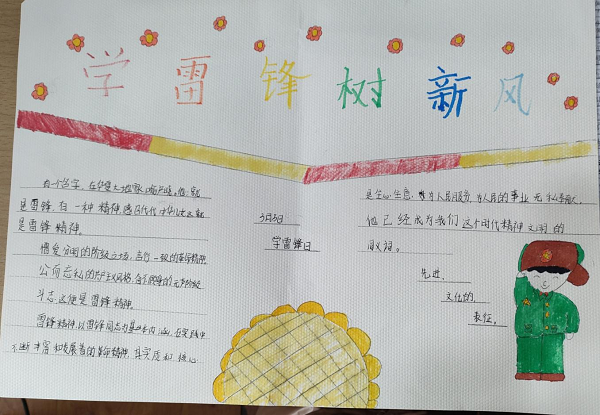 学雷锋树新风
有一个名字,在华夏大地家喻户晓。他就
是雷锋,有一种精神,感召代代中华儿女,就
是雷锋精神。
憎爱分明的阶级立场、言行一致的革命精神、
公而忘私的共产主义风格、奋不顾身的无产阶级
斗志,这便是雷锋精神。
雷锋精神,以雷锋同志为基本内涵,在实践中
不断丰富和发展着的革命精神,其实质和核心
3月5日
学雷锋日
是全心全意为人民服务,为人民的事业无私奉献,
他已经成为我们这个时代精神文明的
同义词。
先进、
文化的
表征。